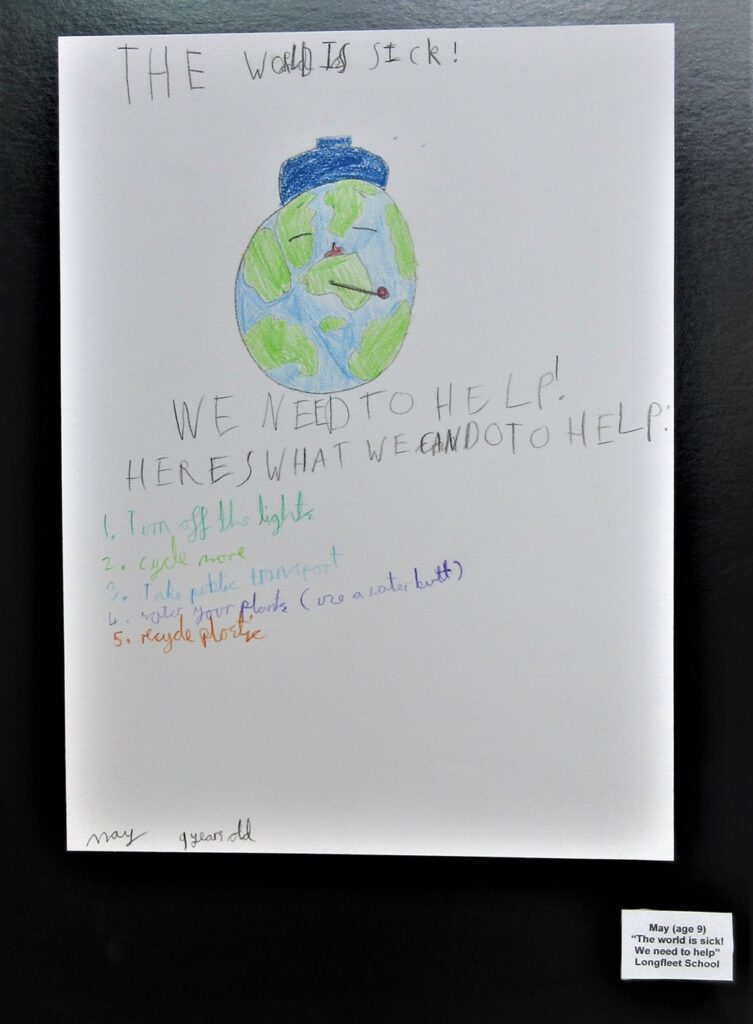 THE WORLD IS SICK!
WE NEED TO HELP!
HERES WHAT WE CAN DO TO HELP:
1. Turn off the lights
2. cycle more
3. Take public transport
4. water your plants (use a water butt)
5. recycle plastic
may 9 years old
May (age 9)
"The world is sick!
We need to help"
Longfleet School